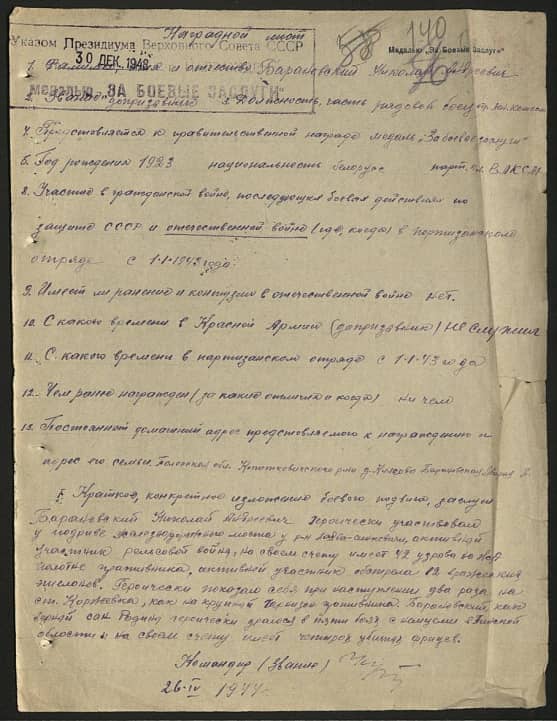 Наградной лист
Указом Президиума Верховного Совета СССР
30 ДЕК. 1948
140
58
Медалью „За Боевые Заслуги“
1. Фамилия, имя и отчество Барановский Николай
МЕДАЛЬЮ „ЗА БОЕВЫЕ ЗАСЛУГИ“
2. Звание допризывник 3. Должность, часть рядовой
4. Представляется к правительственной награде медаль „За боевые заслуги“
5. Год рождения 1923 национальность белорус парт. чл. ВЛКСМ
8. Участие в гражданской войне, последующих боевых действиях по
защите СССР и отечественной войне (где, когда) в партизанском
отряде с 1-1-1943 года.
9. Имеет ли ранения и контузии в отечественной войне нет.
10. С какого времени в Красной Армии (допризывник) не служил
11. С какого времени в партизанском отряде с 1-1-43 года
12. Чем ранее награжден (за какие отличия и когда) ни чем
13. Постоянный домашний адрес представляемого к награждению и
адрес его семьи. Полесская обл. Копаткевичского р-на д. Барановская
I Краткое, конкретное изложение боевого подвига, заслуг
Барановский Николай героически участвовал
у подрыве железнодорожного моста у р-н активный
участник рельсовой войны, на своем счету имеет 42
полотне противника, активный участник обстрела 12 вражеских
эшелонов. Героически показал себя при наступлении два раза на
ст. Коржевка, как на крупный гарнизон противника. Барановский, как
верный сын Родины героически дрался в пяти боях с немцами в Пинской
области и на своем счету имеет четырех убитых фрицев.
Командир (звание)
26-IV 1944г.